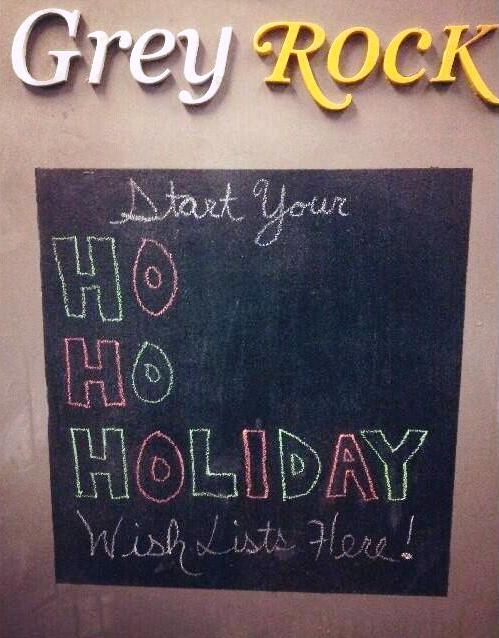 Grey Rock
Start Your
HO
HO
HOLIDAY
Wish Lists Here!